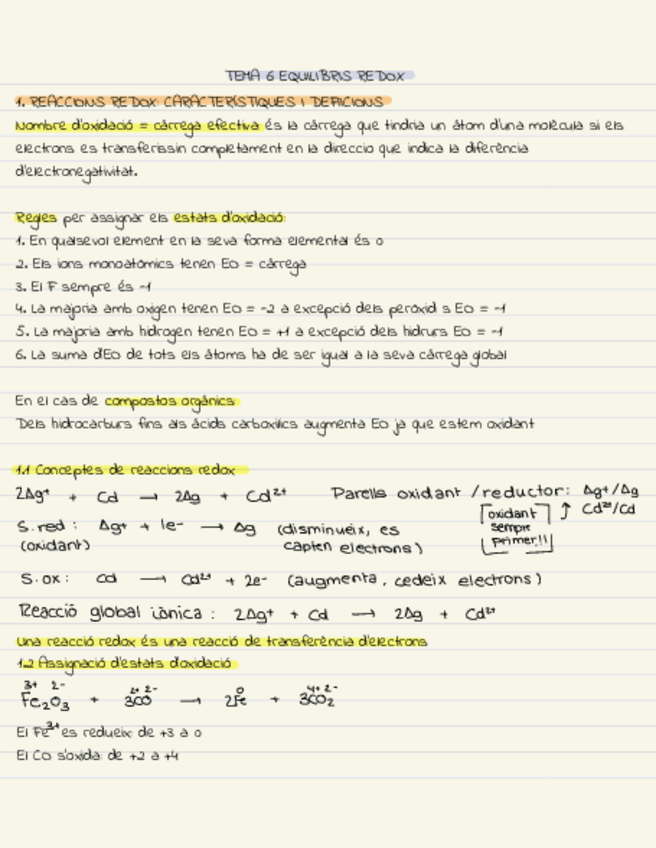 TEMA 6 EQUILIBRIS REDOX
1. REACCIONS REDOX: CARACTERÍSTIQUES I DEFICIONS
Nombre d'oxidació = càrrega efectiva és la càrrega que tindria un àtom d'una molècula si els
electrons es transferissin completament en la direccio que indica la diferència
d'electronegativitat.
Regles per assignar els estats d'oxidació:
1. En qualsevol element en la seva forma elemental és 0
2. Els ions monoatòmics tenen EO = càrrega
3. El F sempre és -1
4. La majoria amb oxigen tenen EO = -2 a excepció dels peròxid s EO = -1
5. La majoria amb hidrogen tenen EO = +1 a excepció dels hidrurs EO = -1
6. La suma d'EO de tots els àtoms ha de ser igual a la seva càrrega global
En el cas de compostos orgànics
Dels hidrocarburs fins als àcids carboxílics augmenta EO ja que estem oxidant
1.1 Conceptes de reaccions redox
2Ag⁺ + Cd → 2Ag + Cd²⁺ Parells oxidant / reductor: Ag⁺/Ag
Cd²⁺/Cd
oxidant ↑
sempre
primer!!
S. red: Ag⁺ + 1e⁻ → Ag (disminueix, es
(oxidant) capten electrons)
S. ox: Cd → Cd²⁺ + 2e⁻ (augmenta, cedeix electrons)
Reacció global iònica: 2Ag⁺ + Cd → 2Ag + Cd²⁺
Una reacció redox és una reacció de transferència d'electrons
1.2 Assignació d'estats d'oxidació
3+ 2- 2+ 2- 0 4+ 2-
Fe₂O₃ + 3CO → 2Fe + 3CO₂
El Fe³⁺ es redueix de +3 a 0
El CO s'oxida de +2 a +4